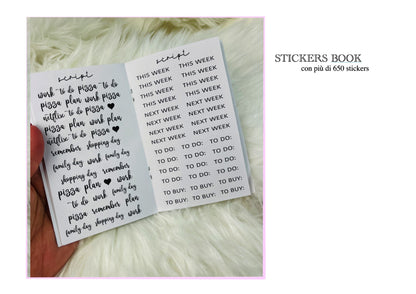 STICKERS BOOK
con più di 650 stickers
script
work to do pizza to do
pizza plan work pizza
netflix to do pizza
pizza plan work plan
netflix to do pizza
remember shopping day
family day work family day
shopping day remember
pizza plan work
to do work family day
pizza remember plan
family day shopping day work
script
THIS WEEK THIS WEEK
THIS WEEK THIS WEEK
THIS WEEK THIS WEEK
THIS WEEK THIS WEEK
NEXT WEEK NEXT WEEK
NEXT WEEK NEXT WEEK
NEXT WEEK NEXT WEEK
TO DO: TO DO: TO DO:
TO DO: TO DO: TO DO:
TO DO: TO DO: TO DO:
TO DO: TO DO: TO DO:
TO BUY: TO BUY: TO BUY:
TO BUY: TO BUY: TO BUY: